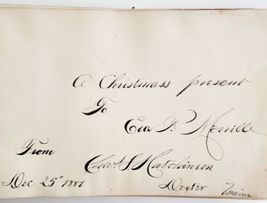 A Christmass present
To
Eva P. Merrille
From
Chas S Hutchinson
Dec 25th 1881 Dexter Maine